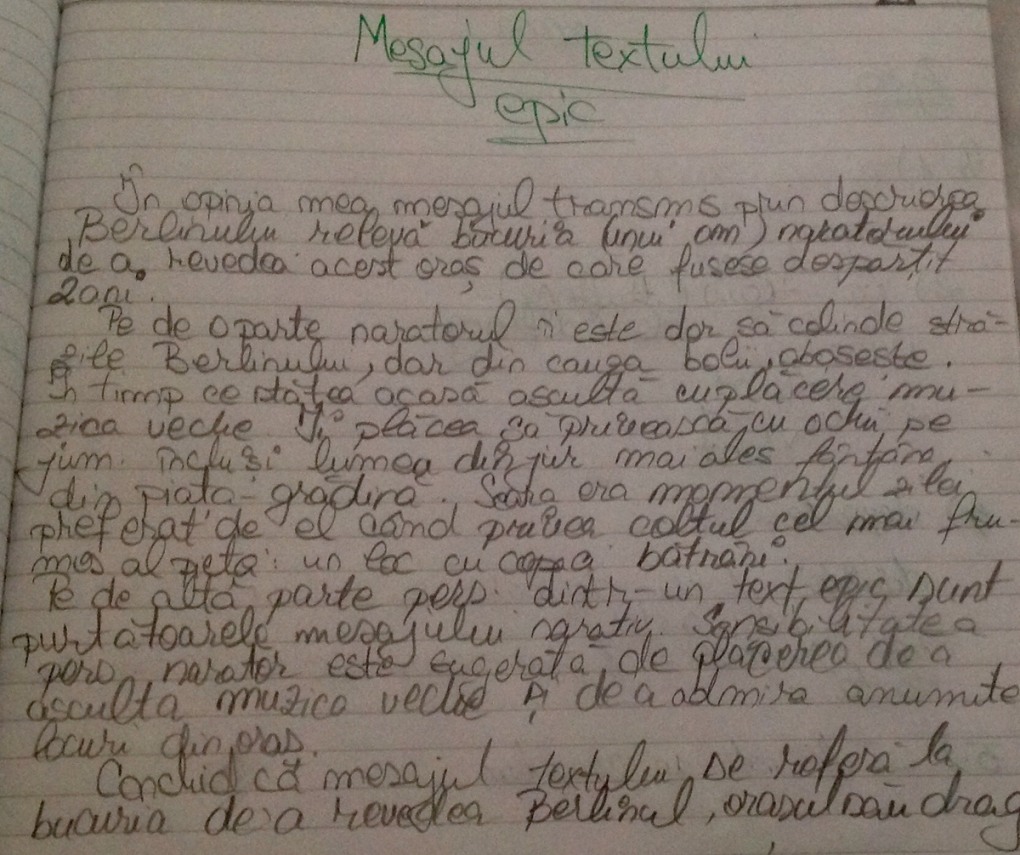 Mesajul textului
epic
În opinia mea mesajul transms prin descrierea
Berlinului relevă bucuria (unui om) naratorului
de a revedea acest oraș de care fusese despartit
2 ani.
Pe de o parte naratorul îi este dor să colinde stră-
zile Berlinului, dar din cauza bolii, oboseste.
În timp ce stătea acasă asculta cu plăcere mu-
zica veche. Îi plăcea să privească cu ochii pe
jum. incluși lumea din jur mai ales fântâna
din piata-gradină. Seara era momentul zilei
preferat de el când privea coltul cel mai fru-
mos al pieței: un loc cu copaci bătrâni.
Pe de altă parte pers. dintr-un text epic sunt
purtătoarele mesajului narativ. Sensibilitatea
pers. narator este sugerată de plăcerea de a
asculta muzica veche și de a admira anumite
locuri din oras.
Conchid că mesajul textului se referă la
bucuria de a revedea Berlinul, orasul sau drag